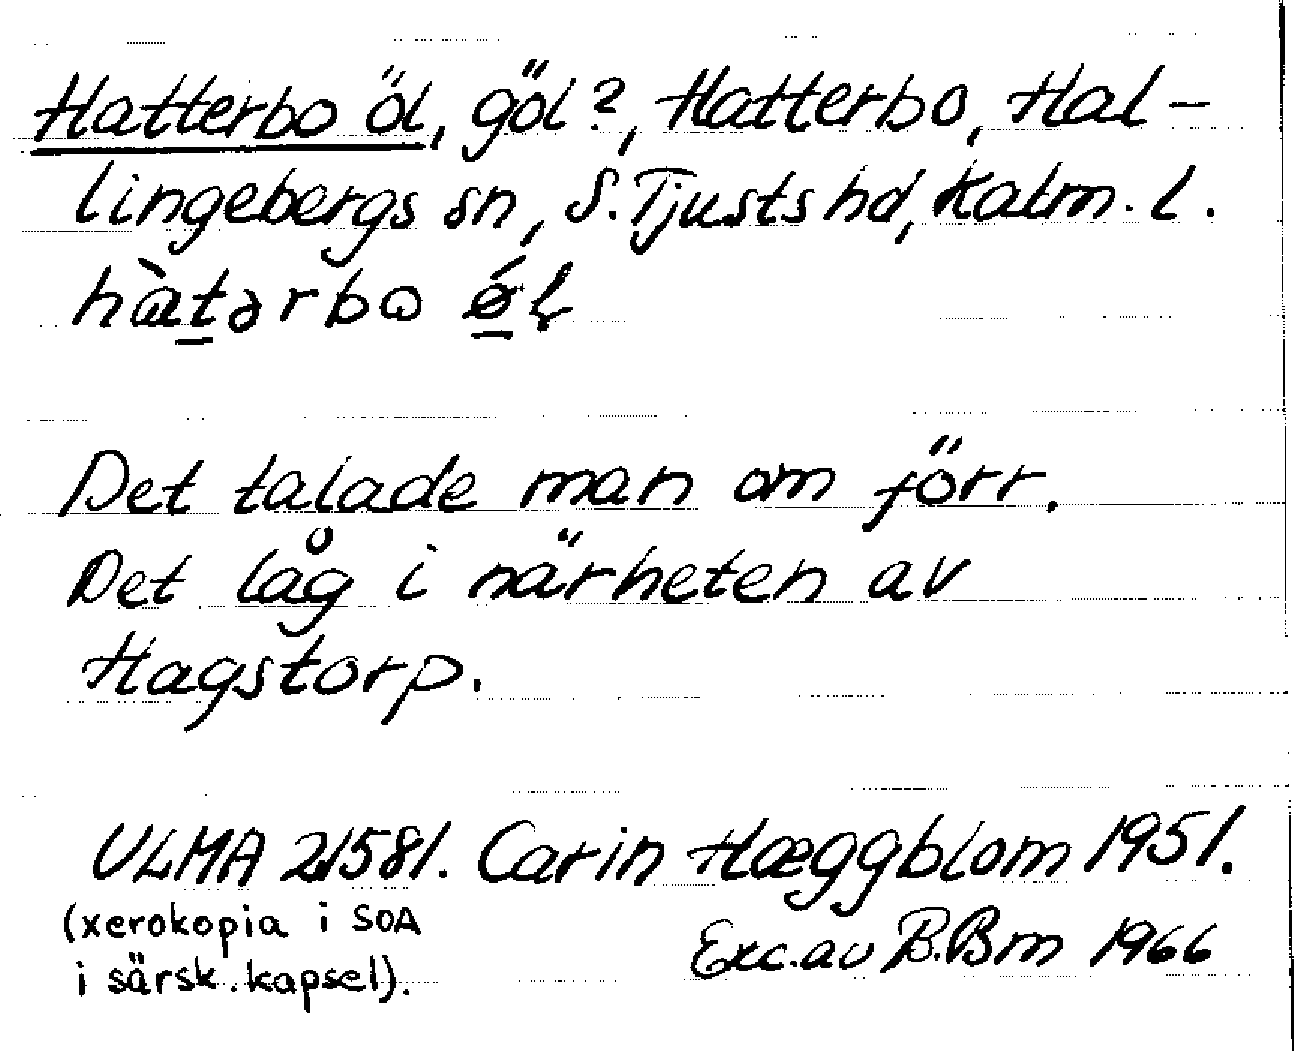 Hatterbo öl, göl?, Hatterbo, Hal-
lingebergs sn, S. Tjusts hd, Kalm. l.
hàt̠ərbo ǿ̠ɭ
Det talade man om förr.
Det låg i närheten av
Hagstorp.
ULMA 21581. Carin Hæggblom 1951.
(xerokopia i SOA
i särsk. kapsel).
Exc. av B. Bm 1966